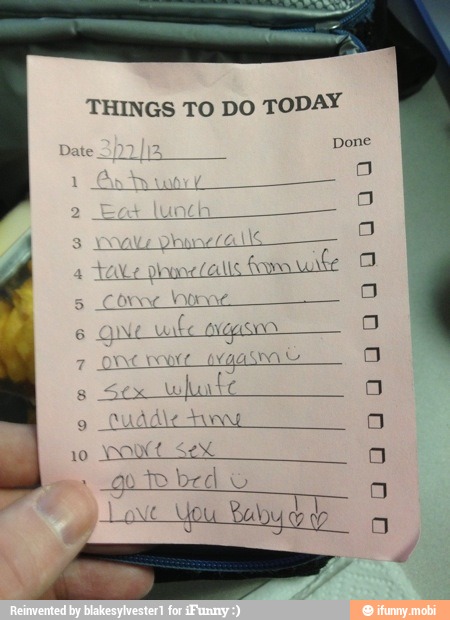 THINGS TO DO TODAY
Date 3/22/13 Done
1 Go to work
2 Eat lunch
3 make phonecalls
4 take phonecalls from wife
5 come home
6 give wife orgasm
7 one more orgasm
8 sex w/wife
9 cuddle time
10 more sex
go to bed
Love You Baby
Reinvented by blakesylvester1 for iFunny :)
ifunny.mobi